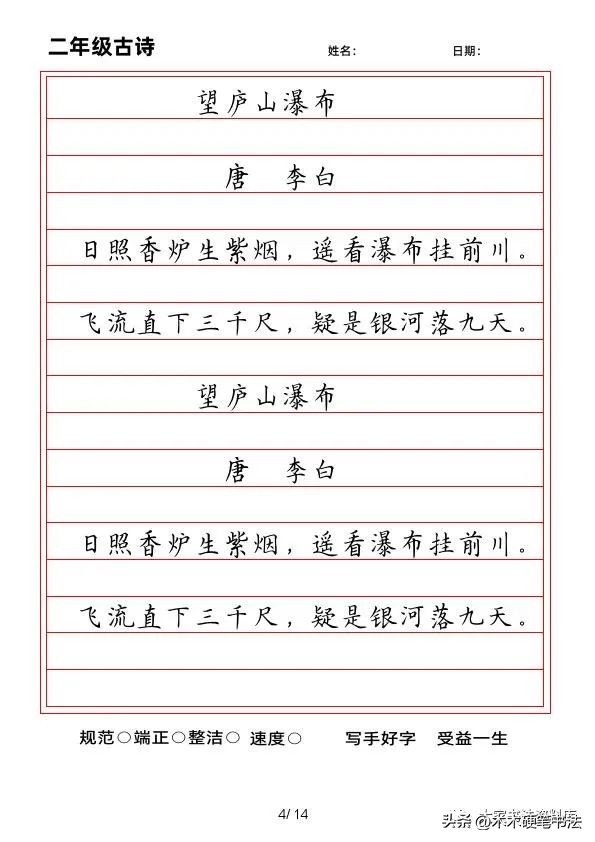 二年级古诗 姓名： 日期：
望庐山瀑布
唐 李白
日照香炉生紫烟，遥看瀑布挂前川。
飞流直下三千尺，疑是银河落九天。
望庐山瀑布
唐 李白
日照香炉生紫烟，遥看瀑布挂前川。
飞流直下三千尺，疑是银河落九天。
规范○端正○整洁○ 速度○ 写手好字 受益一生
4/ 14
头条 @木木硬笔书法